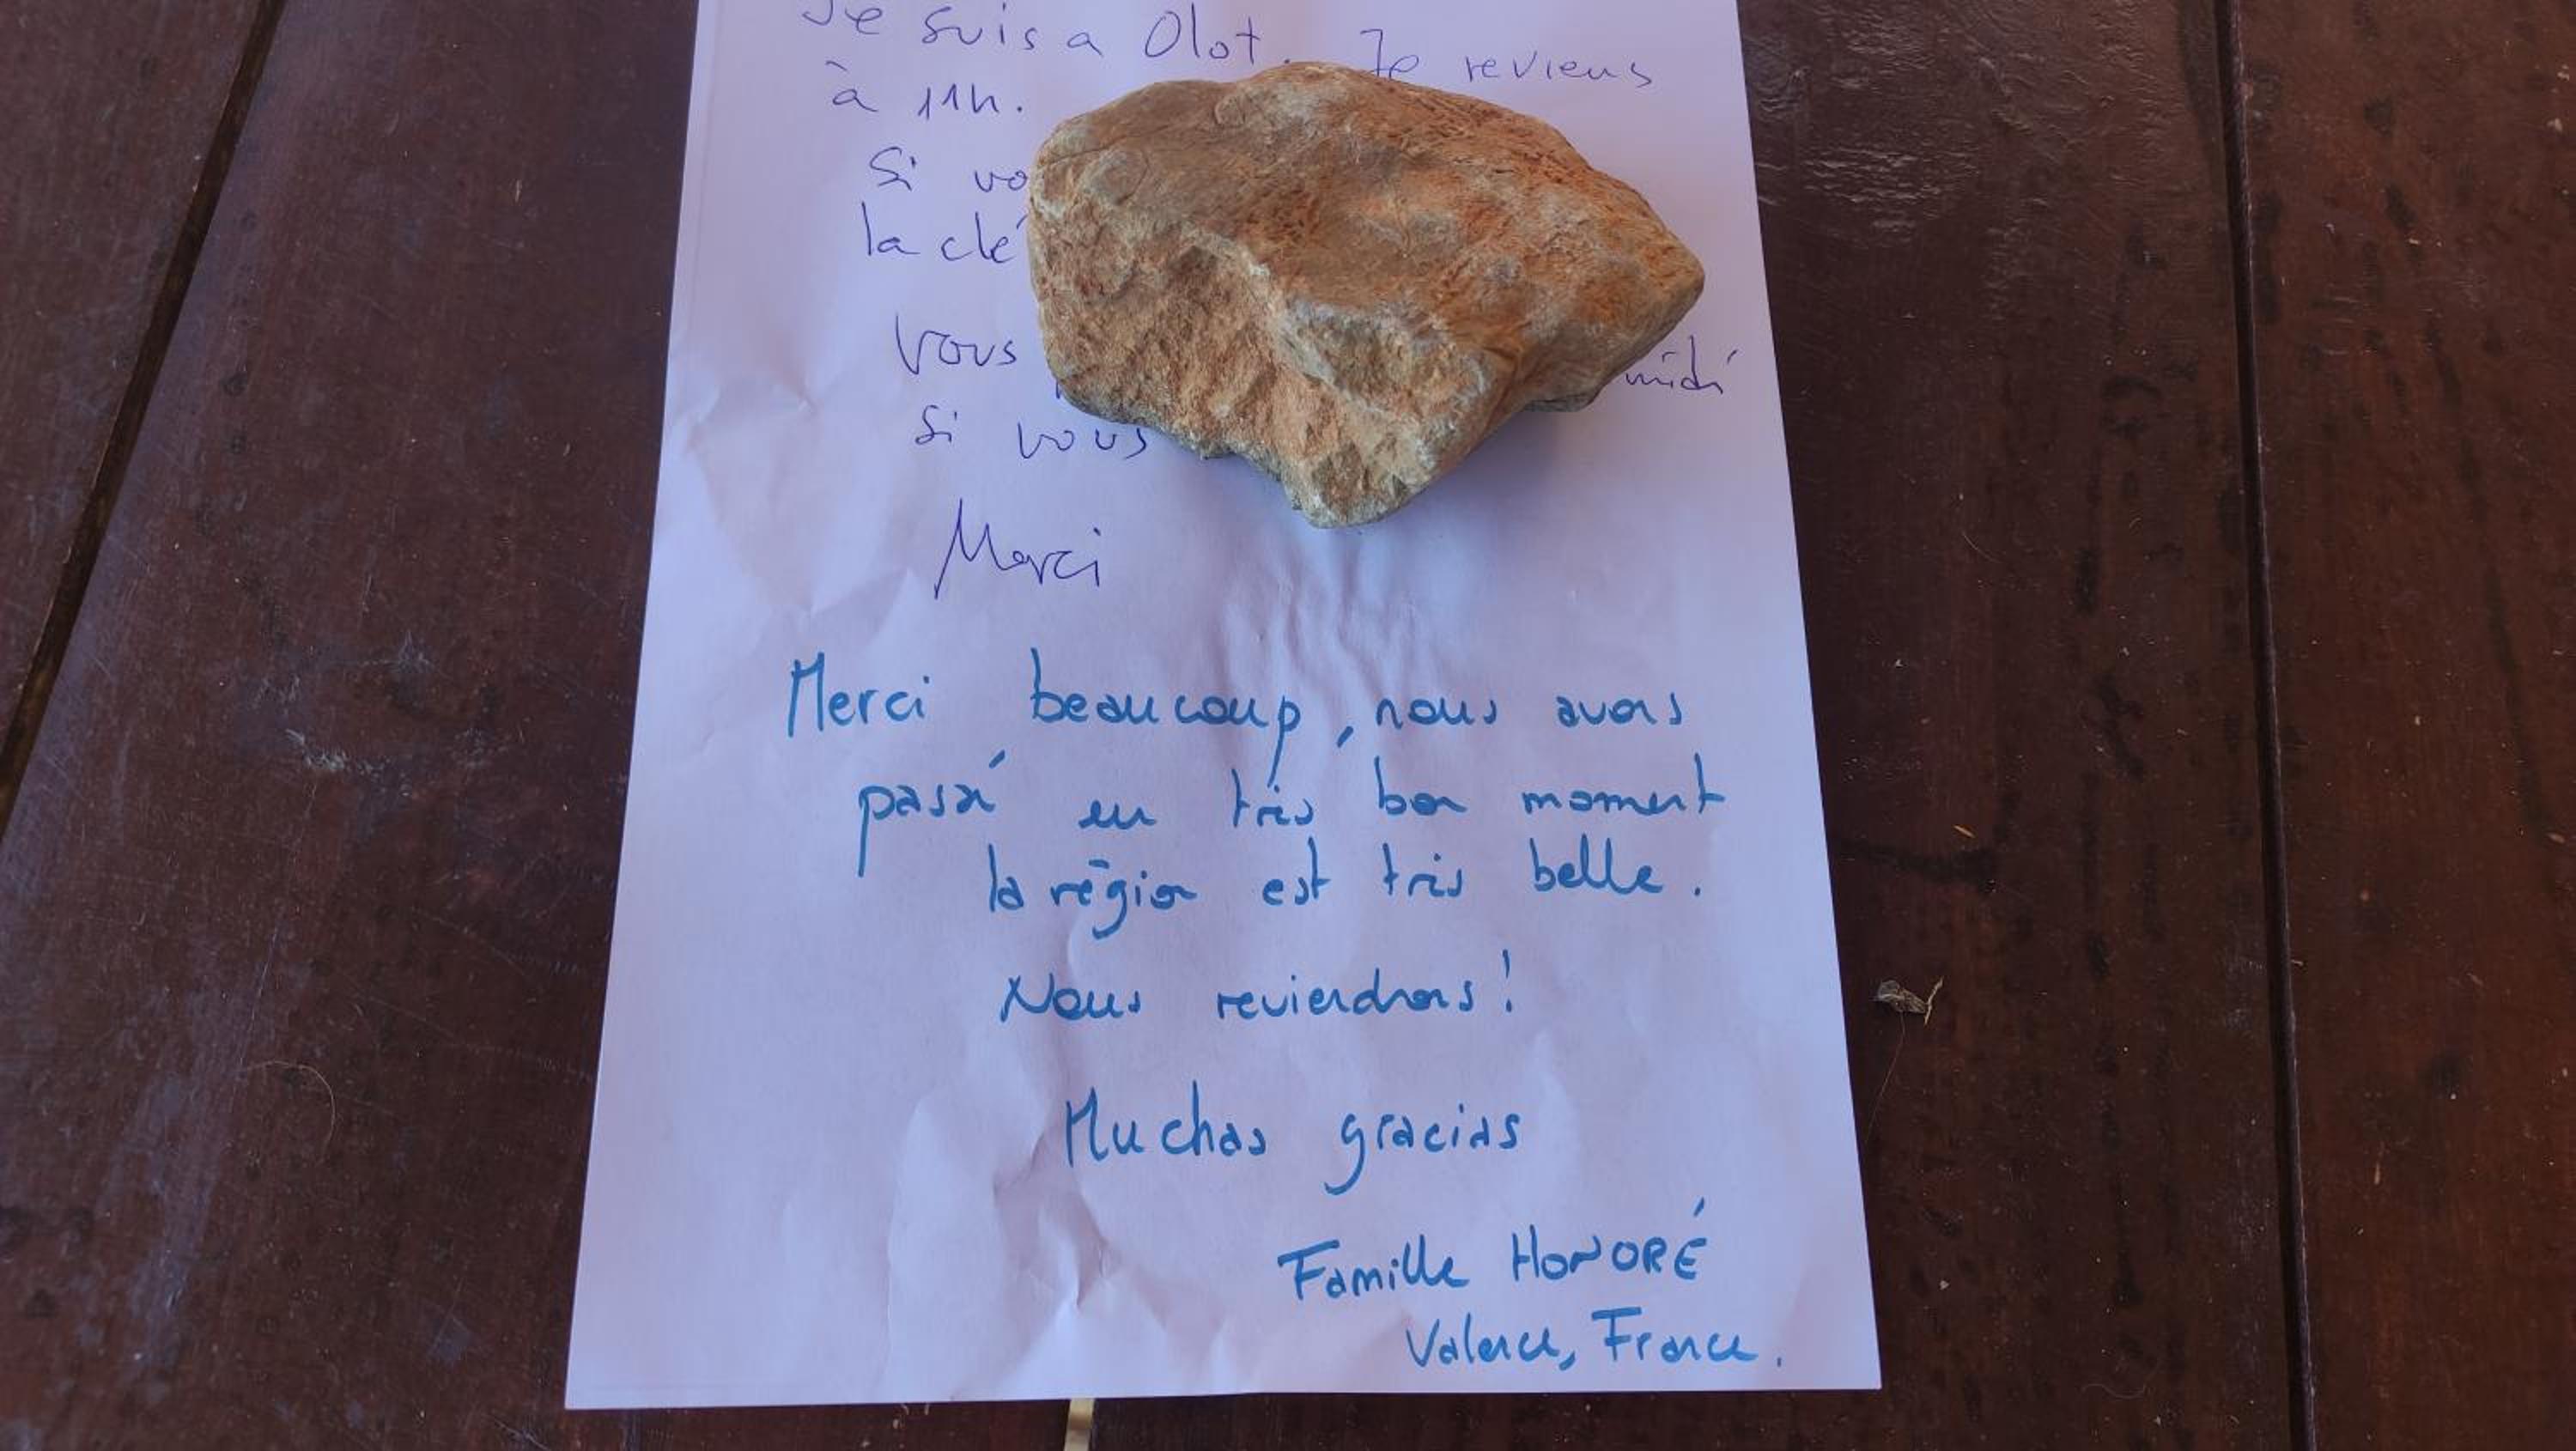 Je suis a Olot. Je reviens
à 11h.
Si
la clé
Vous midi
si vous
Merci
Merci beaucoup, nous avons
passé un très bon moment
la région est très belle.
Nous reviendrons!
Muchas gracias
Famille HONORÉ
Valence, France.